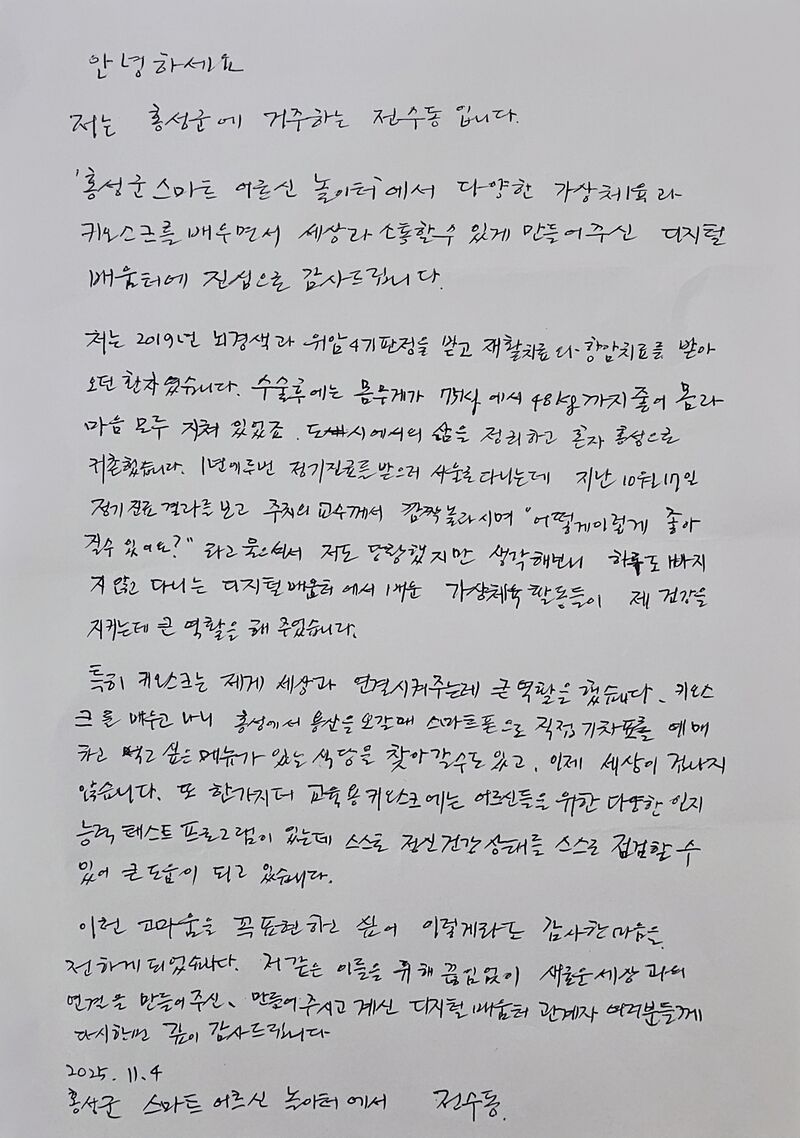 안녕하세요
저는 홍성군에 거주하는 전수동입니다.
'홍성군 스마트 어르신 놀이터'에서 다양한 가상체육과
키오스크를 배우면서 세상과 소통할수 있게 만들어주신 디지털
배움터에 진심으로 감사드립니다.
저는 2019년 뇌경색과 위암4기판정을 받고 재활치료와 항암치료를 받아
오던 환자였습니다. 수술후에는 몸무게가 75kg에서 48kg까지 줄어 몸과
마음 모두 지쳐 있었죠. 도시에서의 삶을 정리하고 혼자 홍성으로
귀촌했습니다. 1년에두번 정기진료를받으러 서울로다니는데 지난 10월17일
정기진료 결과를보고 주치의 교수께서 깜짝놀라시며 "어떻게이렇게 좋아
질수 있어요?" 라고 물으셔서 저도 당황했지만 생각해보니 하루도 빠지
지않고 다니는 디지털배움터에서 배운 가상체육 활동들이 제 건강을
지키는데 큰 역할을 해 주었습니다.
특히 키오스크는 제게 세상과 연결시켜주는데 큰역할을 했습니다. 키오스
크를 배우고 나니 홍성에서 용산을 오갈때 스마트폰으로 직접기차표를 예매
하고 먹고 싶은메뉴가 있는 식당을 찾아갈수도 있고, 이제 세상이 겁나지
않습니다. 또 한가지더 교육용키오스크에는 어르신들을 위한 다양한 인지
능력 테스트 프로그램이 있는데 스스로 정신건강상태를 스스로 점검할 수
있어 큰도움이 되고 있습니다.
이런 고마움을 꼭표현하고 싶어 이렇게라도 감사한마음을
전하게되었습니다. 저같은 이들을 위해 끊임없이 새로운세상과의
연결을 만들어주신, 만들어주시고 계신 디지털배움터 관계자 여러분들께
다시한번 깊이 감사드립니다
2025. 11. 4
홍성군 스마트 어르신 놀이터에서 전수동.